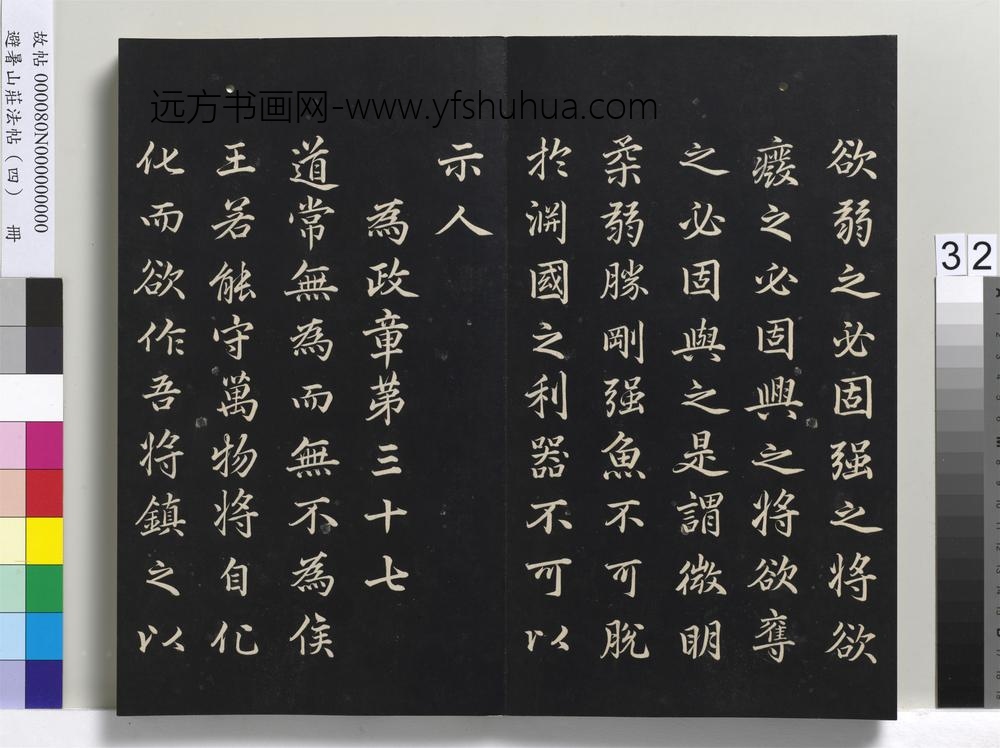 欲弱之必固强之將欲
癈之必固興之將欲奪
之必固與之是謂微明
柔弱勝剛强魚不可脱
扵淵國之利器不可以
示人
為政章第三十七
道常無為而無不為侯
王若能守萬物將自化
化而欲作吾將鎮之以
远方书画网-www.yfshuhua.com
故帖 000080N000000000
避暑山莊法帖（四） 冊
32